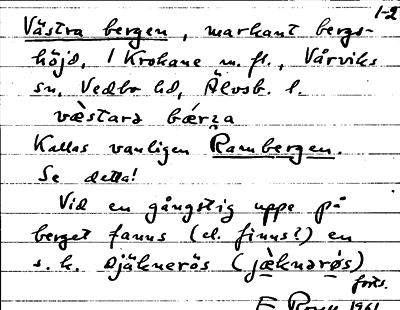 1-2
Västra bergen, markant bergs-
höjd, 1 Krokane m. fl., Vårviks
sn, Vedbo hd, Älvsb. l.
væ̀stara bǽrʒa
Kallas vanligen Rambergen.
Se detta!
Vid en gångstig uppe på
berget fanns (el. finns?) en
s. k. djäknerös (jæknarøs)
forts.
1961